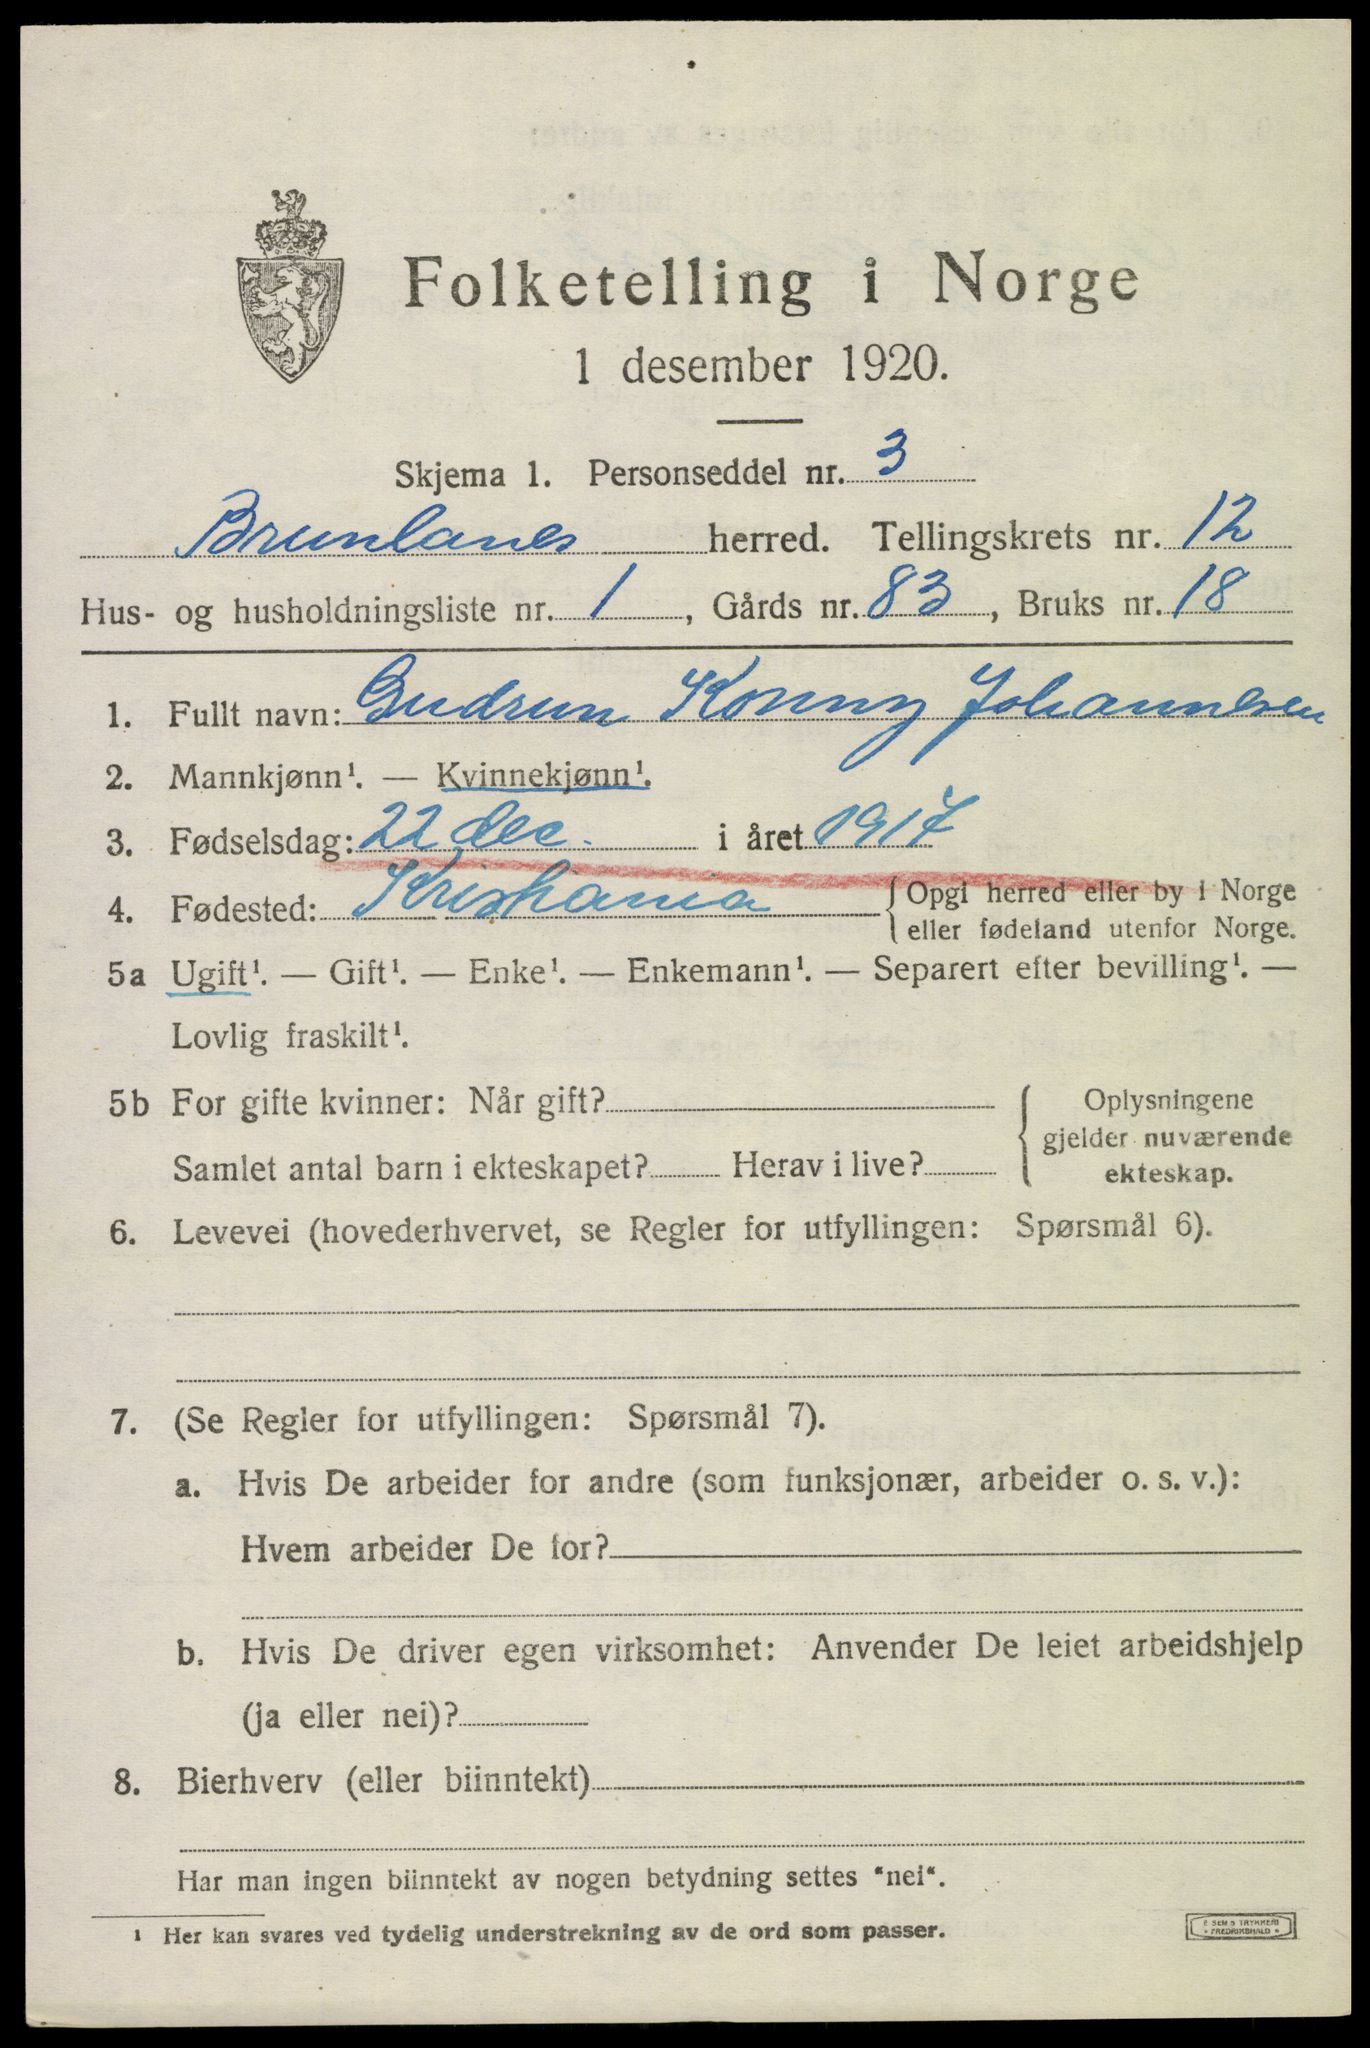 Folketelling i Norge
1 desember 1920.
Skjema 1. Personseddel nr. 3
Brunlanes herred. Tellingskrets nr. 12
Hus- og husholdningsliste nr. 1, Gårds nr. 83, Bruks nr. 18
1. Fullt navn: Gudrun Konny Johannesen
2. Mannkjønn¹. — Kvinnekjønn¹.
3. Fødselsdag: 22 dec. i året 1917
4. Fødested: Kristiania { Opgi herred eller by i Norge
eller fødeland utenfor Norge.
5a Ugift¹. — Gift¹. — Enke¹. — Enkemann¹. — Separert efter bevilling¹. —
Lovlig fraskilt¹.
5b For gifte kvinner: Når gift? { Oplysningene
gjelder nuværende
Samlet antal barn i ekteskapet? Herav i live? ekteskap.
6. Levevei (hovederhvervet, se Regler for utfyllingen: Spørsmål 6).
7. (Se Regler for utfyllingen: Spørsmål 7).
a. Hvis De arbeider for andre (som funksjonær, arbeider o. s. v.):
Hvem arbeider De for?
b. Hvis De driver egen virksomhet: Anvender De leiet arbeidshjelp
(ja eller nei)?
8. Bierhverv (eller biinntekt)
Har man ingen biinntekt av nogen betydning settes "nei".
¹ Her kan svares ved tydelig understrekning av de ord som passer.
E SEM'S TRYKKERI
FREDRIKSHALD